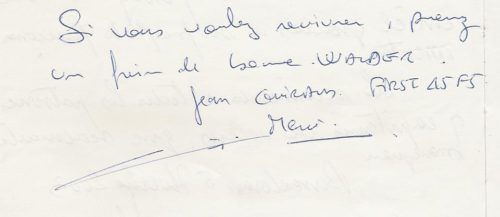 Si vous voulez revivrer, prenez
un frein de bome WALDER.
Jean FIRST 45F5
Merci.